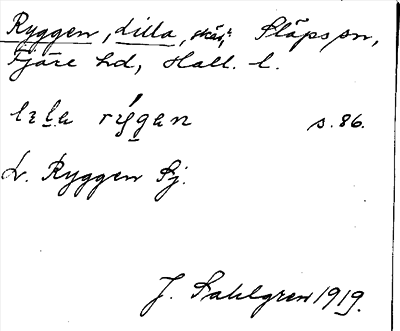 Ryggen, Lilla, skär, Släps sn,
Fjäre hd, Hall. l.
lɛla rygan s. 86.
L. Ryggen Sj.
J. Sahlgren 1919.